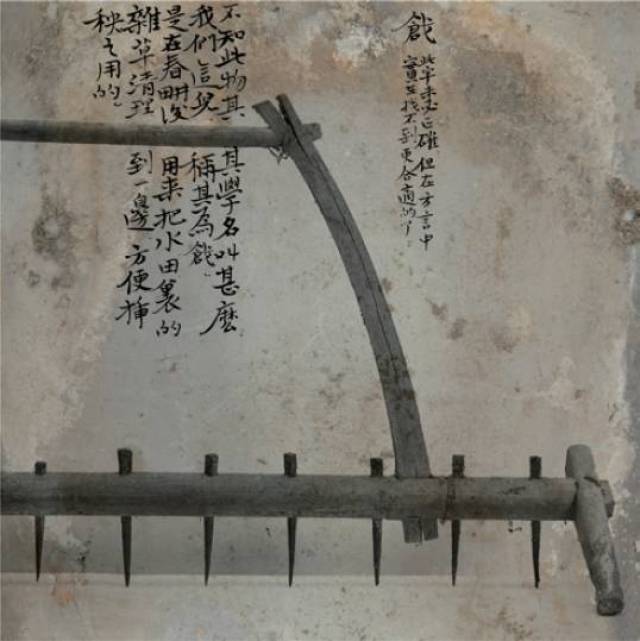 此字未必正確 但在方言中
實在找不到更合適的了
不知此物其 其學名叫甚麼
我们這兒 稱其為
是在春畊後 用来把水田裏的
雜草清理 到一邊 方便插
秧之用的